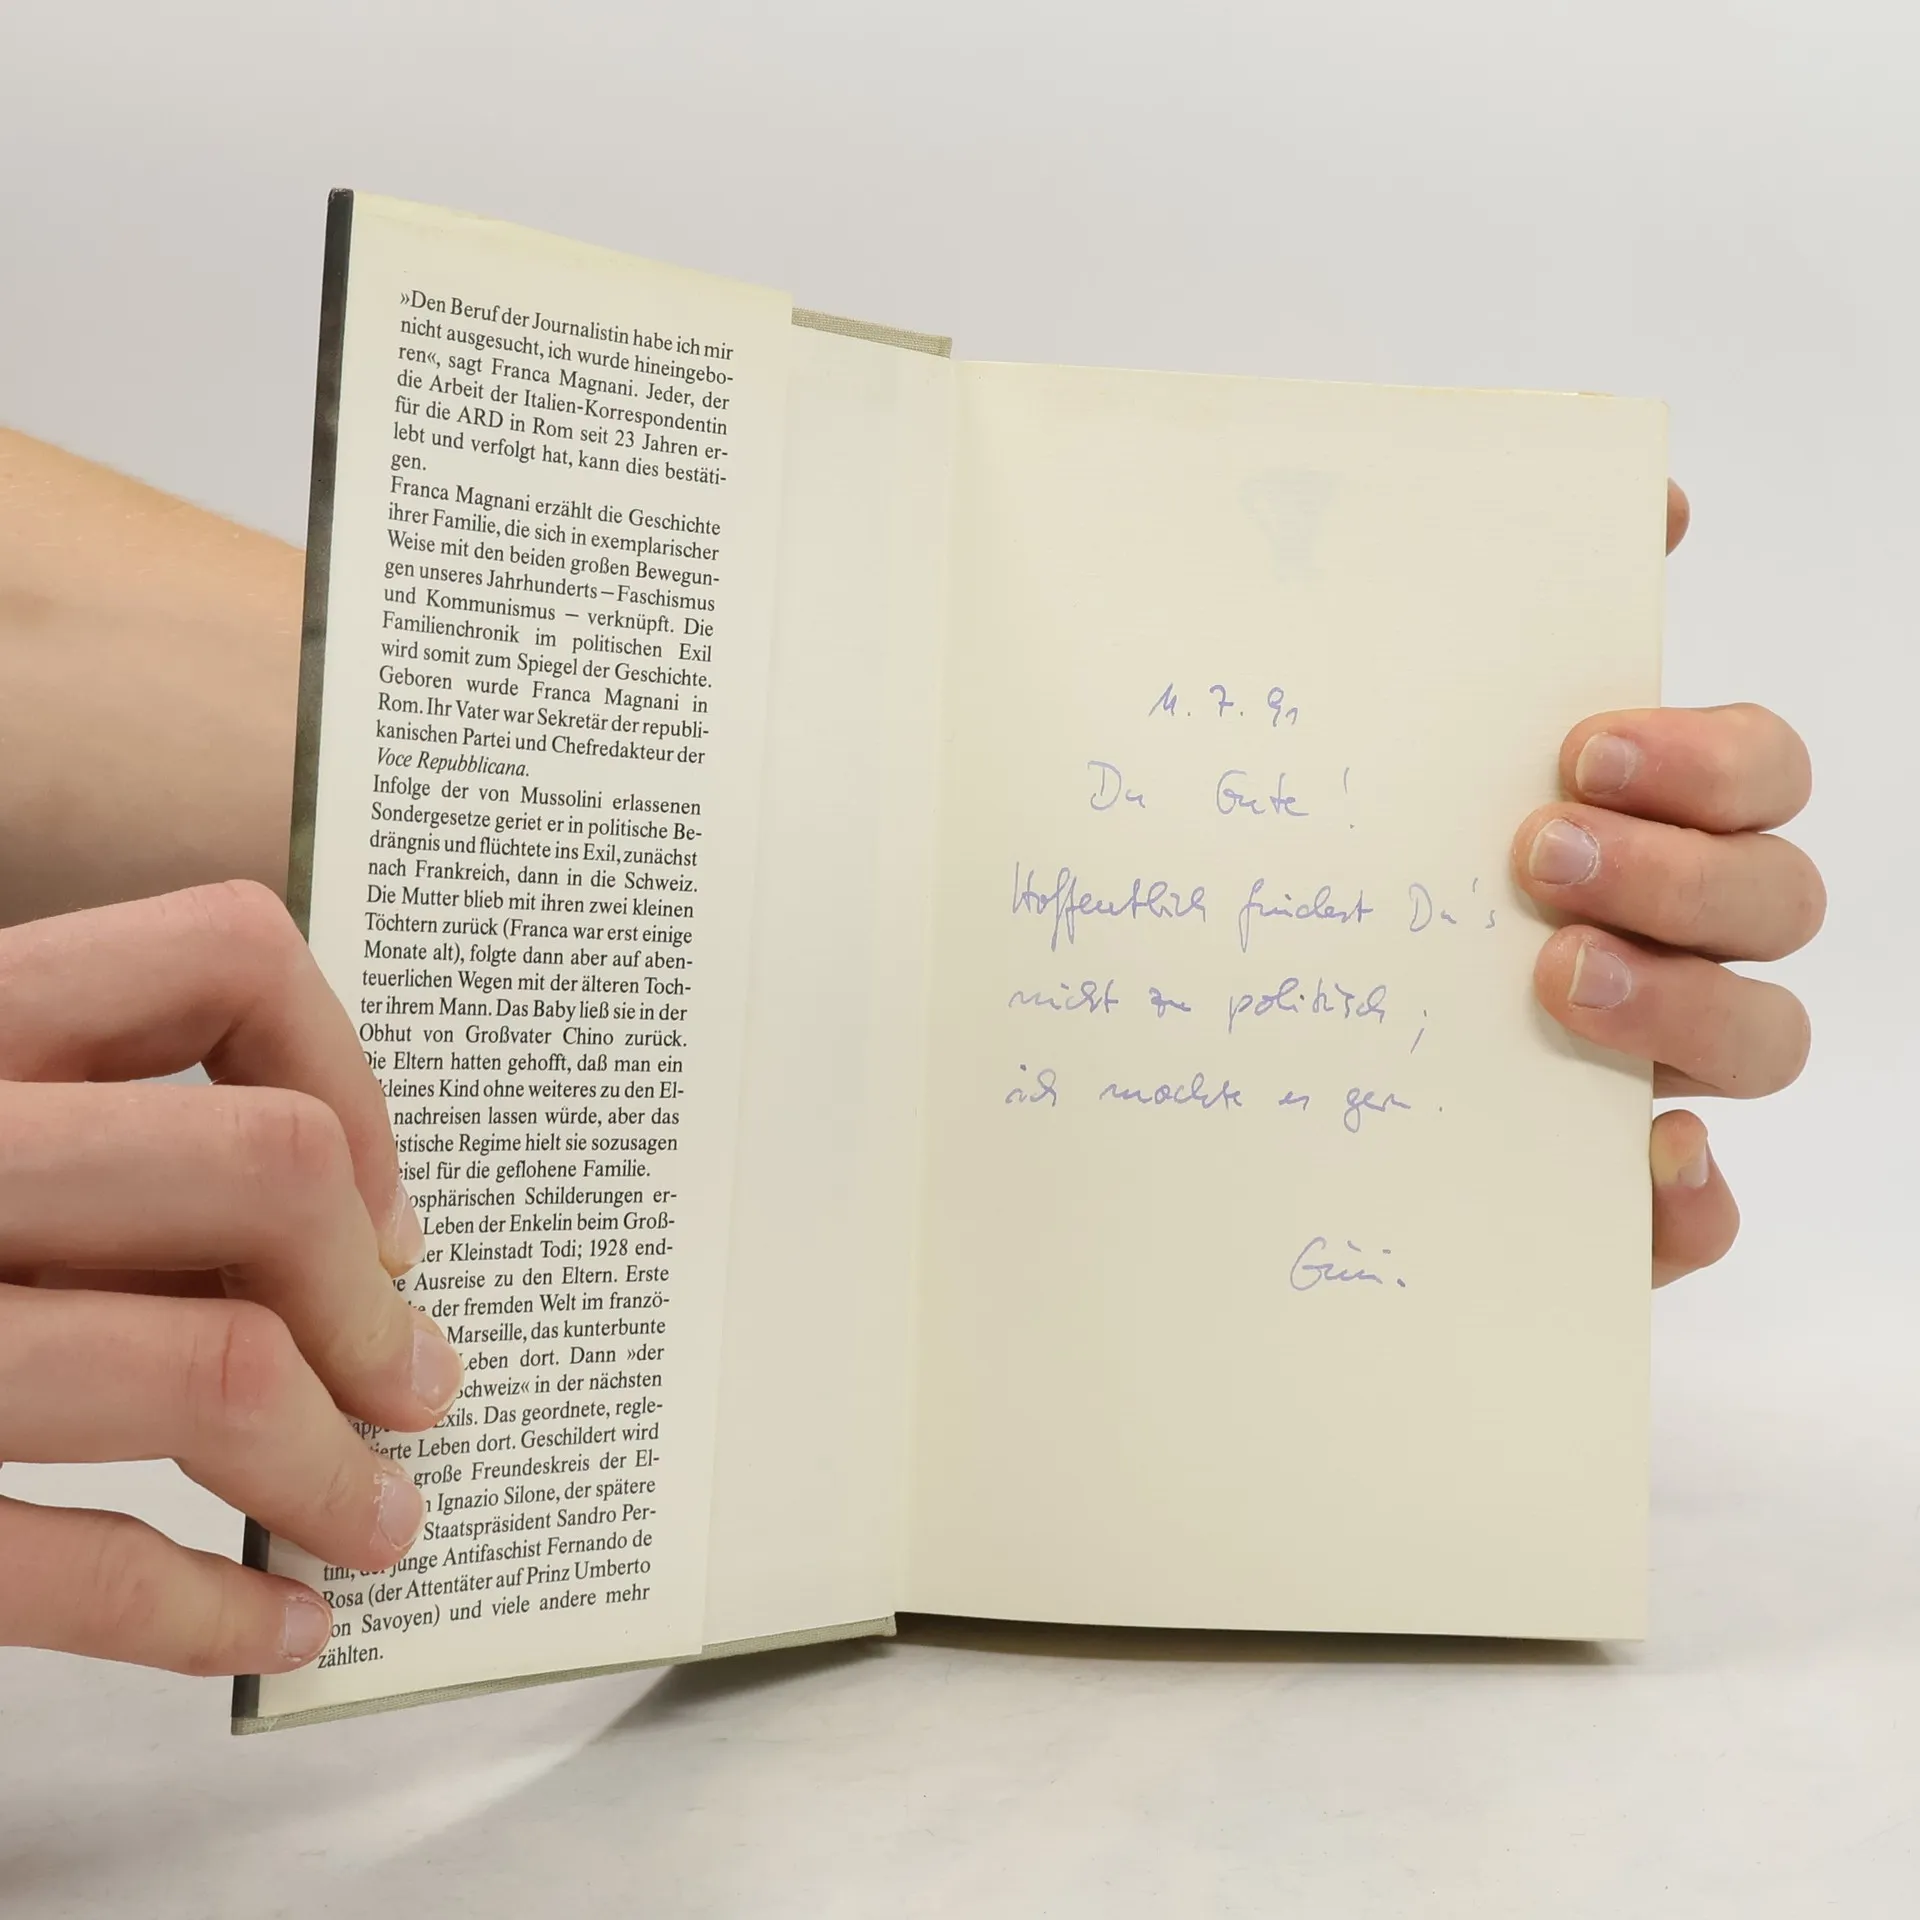 »Den Beruf der Journalistin habe ich mir
nicht ausgesucht, ich wurde hineingebo-
ren«, sagt Franca Magnani. Jeder, der
die Arbeit der Italien-Korrespondentin
für die ARD in Rom seit 23 Jahren er-
lebt und verfolgt hat, kann dies bestäti-
gen.
Franca Magnani erzählt die Geschichte
ihrer Familie, die sich in exemplarischer
Weise mit den beiden großen Bewegun-
gen unseres Jahrhunderts – Faschismus
und Kommunismus – verknüpft. Die
Familienchronik im politischen Exil
wird somit zum Spiegel der Geschichte.
Geboren wurde Franca Magnani in
Rom. Ihr Vater war Sekretär der republi-
kanischen Partei und Chefredakteur der
Voce Repubblicana.
Infolge der von Mussolini erlassenen
Sondergesetze geriet er in politische Be-
drängnis und flüchtete ins Exil, zunächst
nach Frankreich, dann in die Schweiz.
Die Mutter blieb mit ihren zwei kleinen
Töchtern zurück (Franca war erst einige
Monate alt), folgte dann aber auf aben-
teuerlichen Wegen mit der älteren Toch-
ter ihrem Mann. Das Baby ließ sie in der
Obhut von Großvater Chino zurück.
Die Eltern hatten gehofft, daß man ein
kleines Kind ohne weiteres zu den El-
nachreisen lassen würde, aber das
istische Regime hielt sie sozusagen
eisel für die geflohene Familie.
osphärischen Schilderungen er-
Leben der Enkelin beim Groß-
er Kleinstadt Todi; 1928 end-
e Ausreise zu den Eltern. Erste
der fremden Welt im franzö-
Marseille, das kunterbunte
Leben dort. Dann »der
Schweiz« in der nächsten
Exils. Das geordnete, regle-
ierte Leben dort. Geschildert wird
große Freundeskreis der El-
n Ignazio Silone, der spätere
Staatspräsident Sandro Per-
tini, der junge Antifaschist Fernando de
Rosa (der Attentäter auf Prinz Umberto
on Savoyen) und viele andere mehr
zählten.
11. 7. 91
Du Gute!
Hoffentlich findest Du's
nicht zu politisch;
ich mochte es gern.